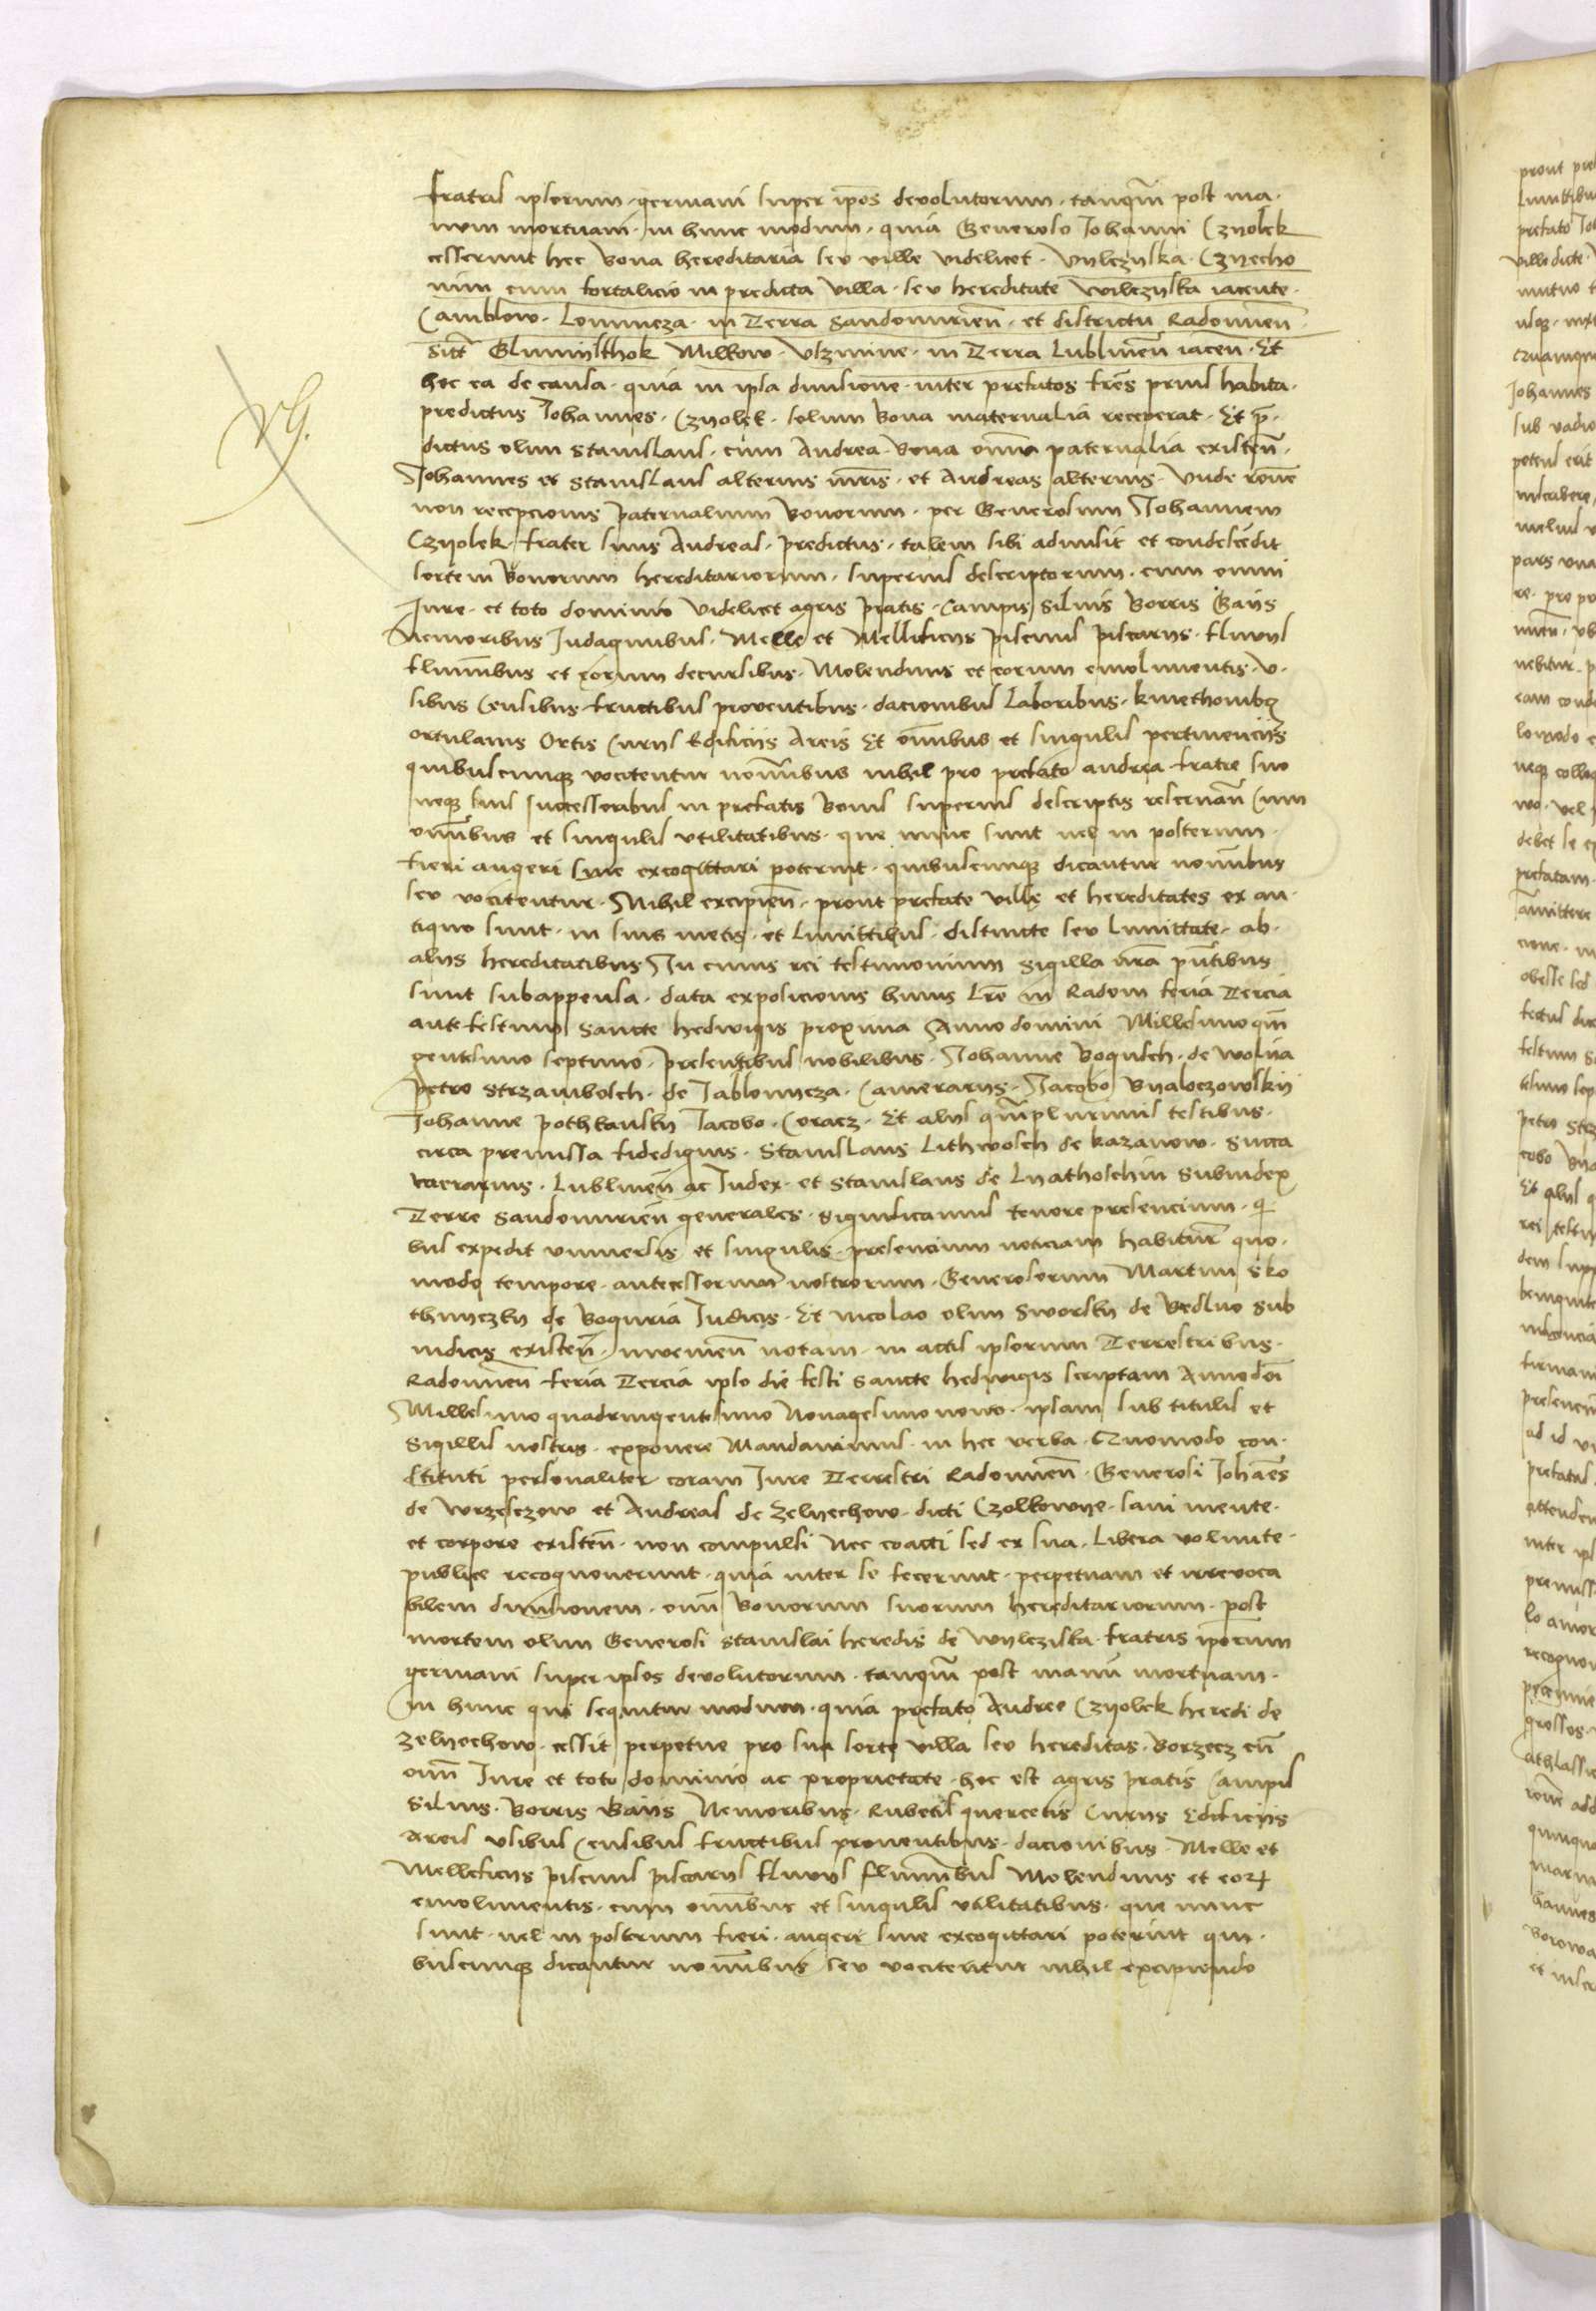 fratris ipsorum · germani super ip̄os devolutorum · tanqm̄ post ma·
num mortuam · in hunc modum · quia Generoso Johanni Czyolek
cesserunt hec bona hereditaria seu ville videlicet · Vylczyska · Czyecho
nim cum fortalicio in predicta villa · seu hereditate Wilczyska iacente ·
Camblow · Lomnicza · in Terra Sandomirien̄ · et districtu Radomien̄ ·
Sitt̄ Glumysthok Milkow · Vszmine · in Terra Lublinen̄ iacen̄ · Et
hec ea de causa · quia in ipsa divisione · inter prefatos fr̄es prius habita ·
predictus Johannes · Czyolek · solum bona maternalia receperat · Et p̄ ·
dictus olim Stanislaus · cum Andrea bona om̄ia paternalia existen̄ ·
Johannes et Stanislaus alterius m̄ris · et Andreas alterius · Unde rōne
non recepcionis paternalium bonorum · per Generosum Johannem
Czyolek · frater suus Andreas · predictus · talem sibi admisit et condescēdit
sortem bonorum hereditariorum · superius descriptorum · cum omni
Jure · et toto dominio videlicet agris pratis · Campis Silvis Borris Gaijs
Nemoribus Indaginibus · Melle et Mellificijs piscinis piscarijs · fluvijs
flumīnibus et eorum decursibus · Molendinis et eorum emolimentis · V·
sibus Censibus fructibus proventibus · dacionibus Laboribus · kmethonibꝫ
ortulanis Ortis Curijs Edificijs Areis Et om̄ibus et singulis pertinencijs
quibuscumqꝫ vocitentur nom̄ibus nihil pro prefato andrea fratre suo
neqꝫ suis successoribus in prefatis bonis superius descriptis reservan̄ Cum
om̄ibus et singulis utilitatibus · que nunc sunt vel in posterum ·
fieri augeri sive excogittari poterint · quibuscumqꝫ dicantur nom̄ibus
seu vocitentur · Nihil excipien̄ · prout prefate ville et hereditates ex an·
tiquo sunt · in suis metis · et Limittibus · distincte seu limittate · ab ·
alijs hereditatibus In cuius rei testimonium Sigilla n̄ra pn̄tibus
sunt subappensa · data exposicionis huius Lr̄e in Radom feria Tercia
ante festum Sancte hedwigis proxima Anno domini Millesimo qin̄
gentesimo septimo · presentibus nobilibus · Johanne Bogusch · de Wolya
petro Strzambosch · de Jablonicza · Camerarijs · Jacobo Byaloczowskij
Johanne pothkansky Jacobo · Coracz · Et alijs qm̄plurimis testibus ·
circa premissa fidedignis · Stanislaus Lithwosch de kazanow · Succa
merarius · Lublinen̄ ac Judex · et Stanislaus de Lyathoschin Subiudex
Terre Sandomirien̄ generales · Significamus tenore presencium · q̄
bus expedit universis et singulis · presencium noticiam habitur̄ quo·
modo tempore · antecessorum nostrorum · Generosorum Martini Sko
thniczky de Boguria Judicis · Et nicolao olim Sworsky de Bedlno Sub
iudicis existen̄ · invenien̄ notam · in actis ipsorum Terrestribus ·
Radomien̄ feria Tercia ipso die festi Sancte hedwigis scriptam Anno dōi
Millesimo quadringentesimo Nonagesimo nono · ipsam sub titulis et
Sigillis nostris · exponere Mandavimus · in hec verba · Quomodo con·
stituti personaliter · coram Jure Terrestri Radomien̄ · Generosi Johan̄es
de Wrzesczow et Andreas de Zelyechow · dicti Czolkowye · sani mente ·
et corpore existen̄ · non compulsi Nec coacti sed ex sua · Libera volun̄te ·
publice recognoverunt · quia inter se fecerunt · perpetuam et irrevoca
bilem divisionem · om̄i bonorum suorum hereditariorum · post
mortem olim Generosi Stanislai heredis de Wylcziska · fratris ip̄orum
germani super ipsos devolutorum · tanqm̄ post manū mortuam ·
in hunc qui sequitur modum · quia prefato Andree Czyolek heredi de
Zelyechow · cessit perpetue pro sua sorte villa seu hereditas · Borzecz cū
om̄i Jure et toto dominio ac proprietate · hoc est agris pratis Campis
Silvis · Borris Gaijs Nemoribus · Rubetis quercetis Curijs Edificijs
Areis Usibus Censibus fructibus proventibus · dacionibus · Melle et
Mellificijs piscinis piscarijs fluvijs flumīnibus Molendinis et eoꝝ
emolimentis · cum om̄ibus et singulis utilitatibus · que nunc
sunt · vel in posterum fieri · augeri sive excogittari poterint qui·
buscumqꝫ dicantur nom̄ibus seu vocitentur nihil excipiendo